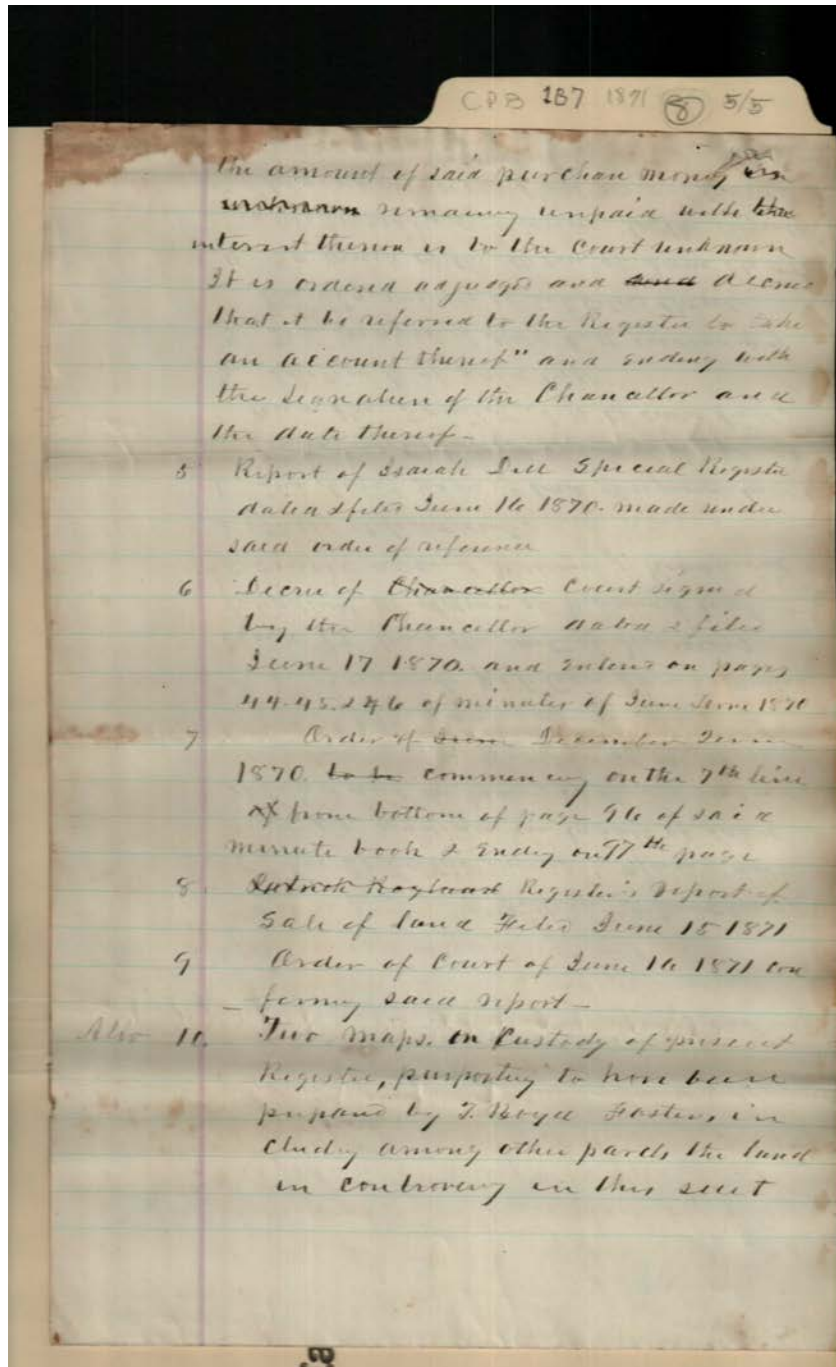 CPB 187 1871 8 5/5
the amount of said purchase money
unknown remaining unpaid with the
interest thereon is to the Court unknown
It is ordered adjudged and and decreed
that it be referred to the Register to take
an account thereof" and ending with
the signature of the Chancellor and
the date thereof-
5 Report of Isaiah Dill Special Register
dated & filed June 16 1870. made under
said order of reference
6 Decree of Chancellor Court signed
by the Chancellor dated & filed
June 17 1870. and entered on pages
44.45.&46 of minutes of June Term 1870
7 Order of June December Term
1870. to be commencing on the 7th line
from bottom of page 96 of said
minute book & ending on 97th page
8. Register's report of
Sale of land Filed June 15 1871
9 Order of Court of June 16 1871 con
firming said report-
Also 10. Two maps. in Custody of present
Register, purporting to have been
prepared by T. Boyd Foster, in
cluding among other parcels the land
in controversy in this suit